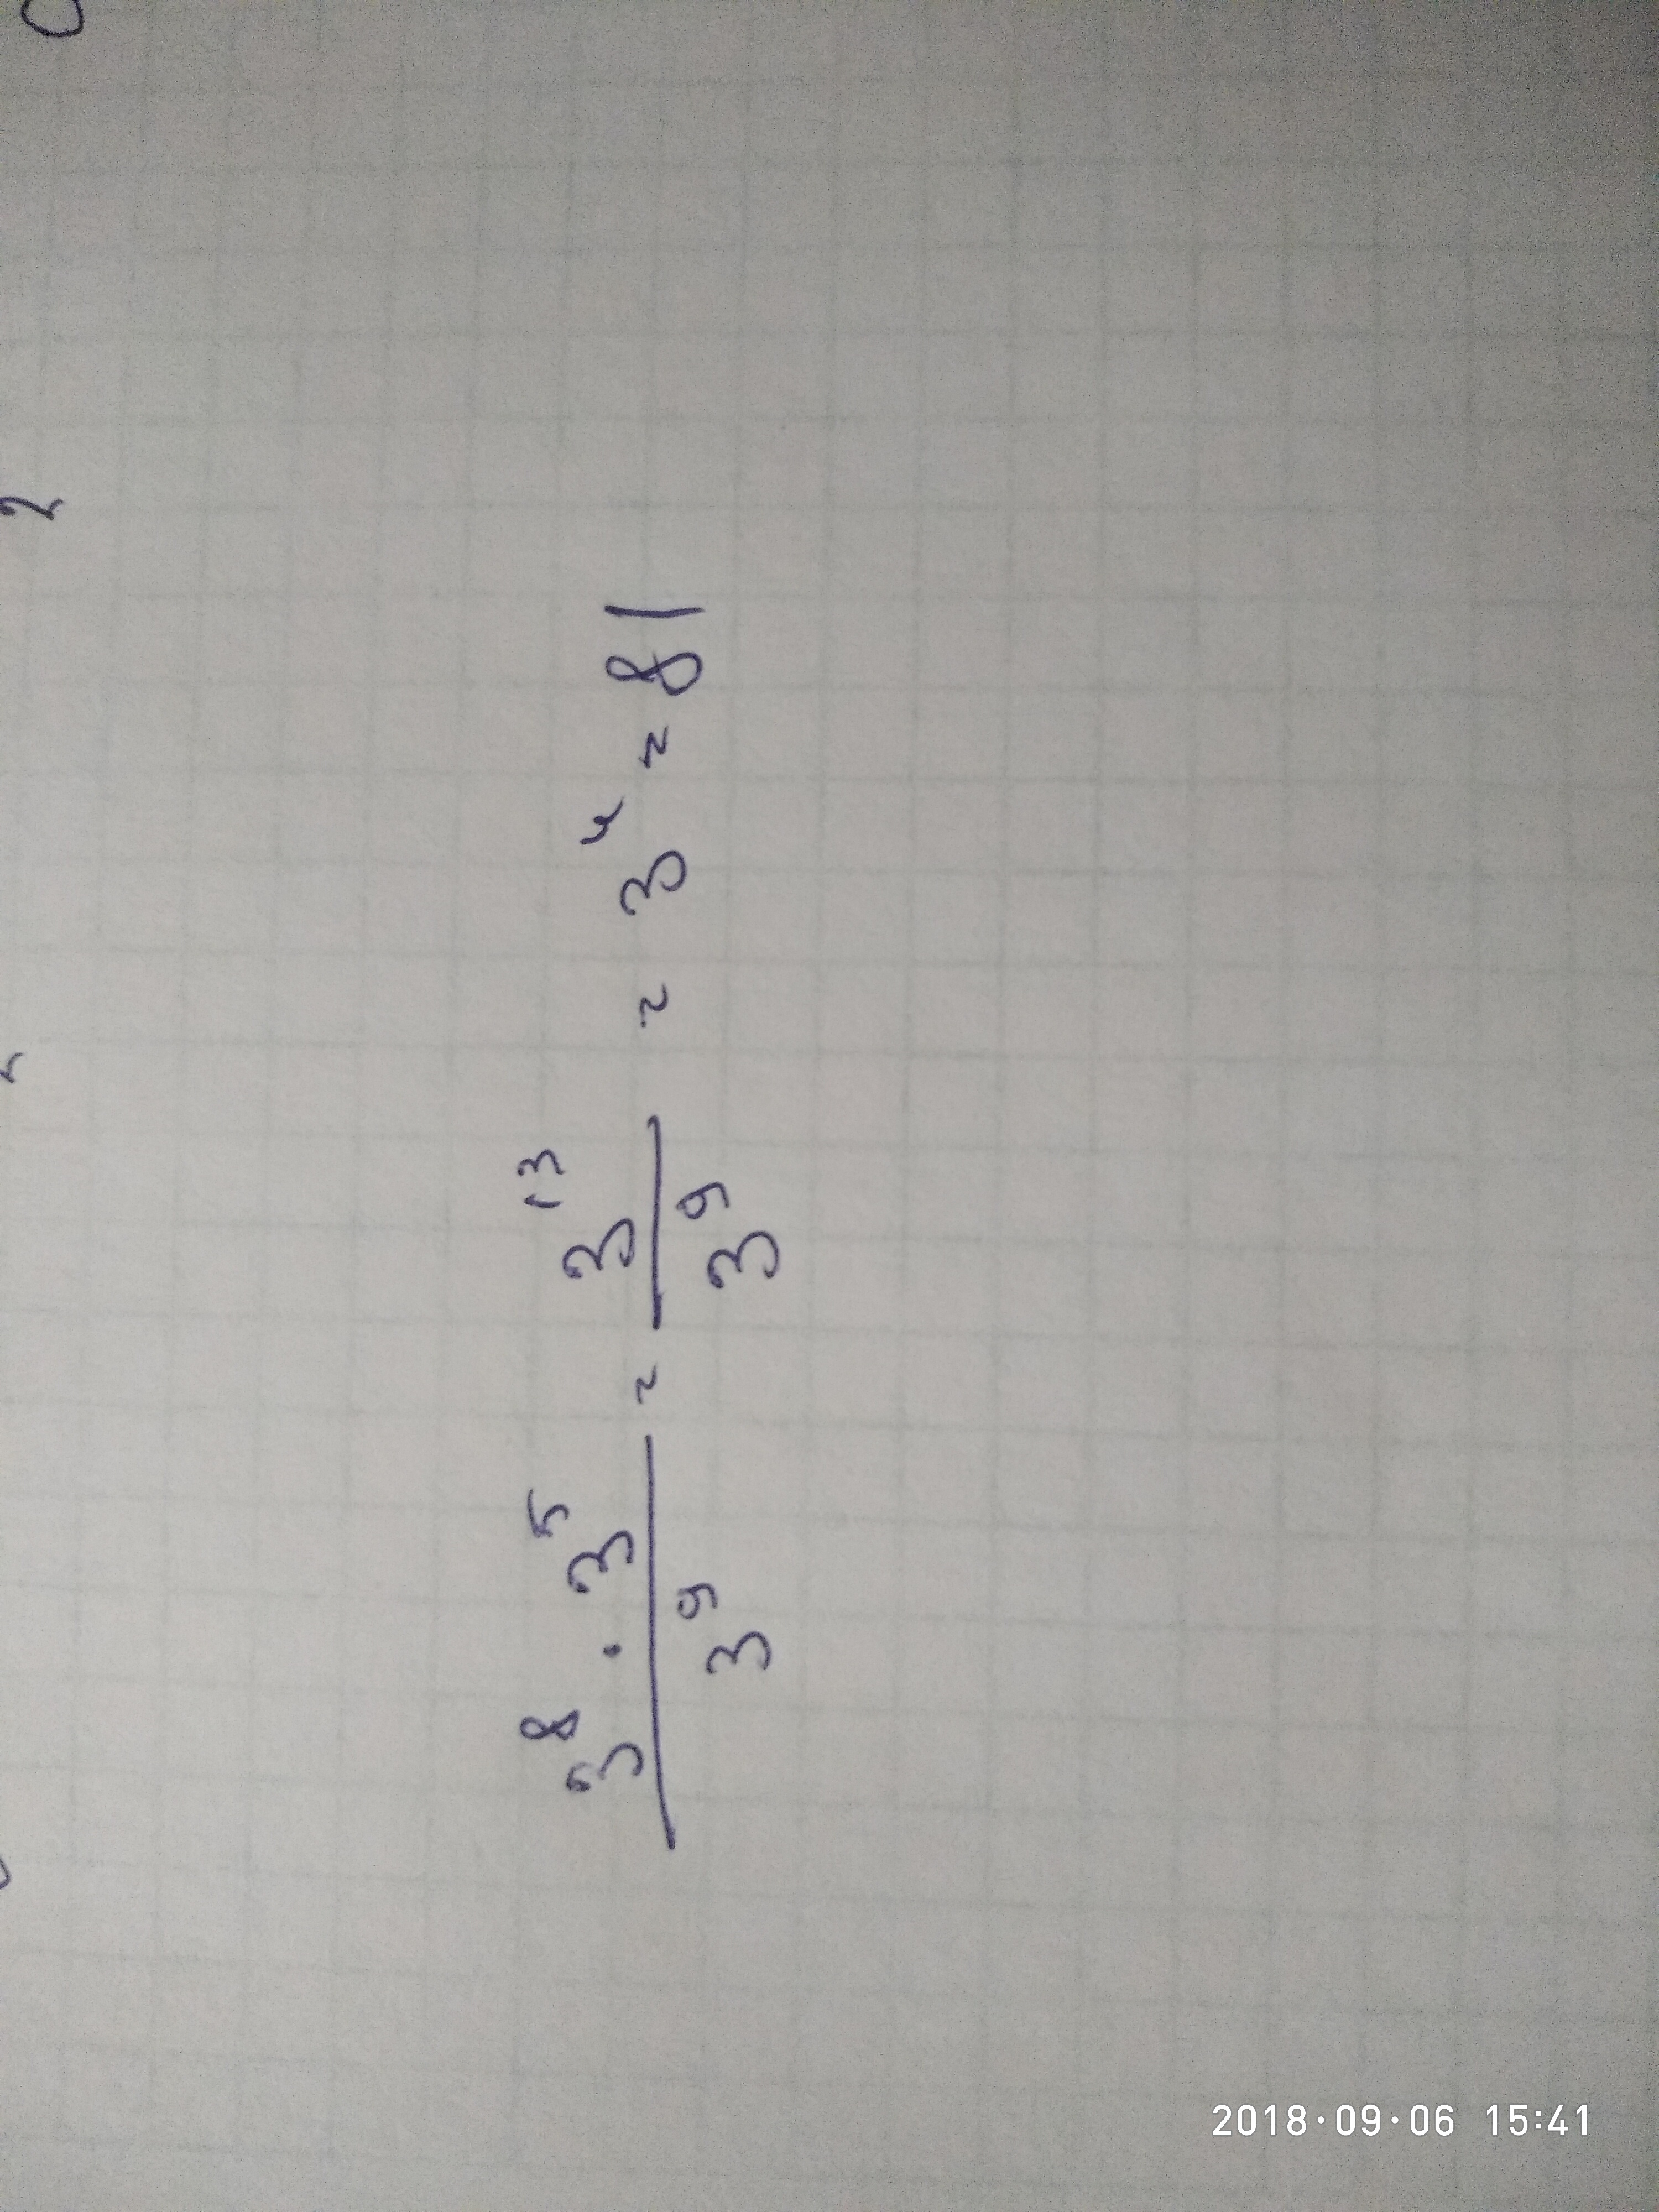 3⁸ · 3⁵ / 3⁹ = 3¹³ / 3⁹ = 3⁴ = 81
2018·09·06 15:41